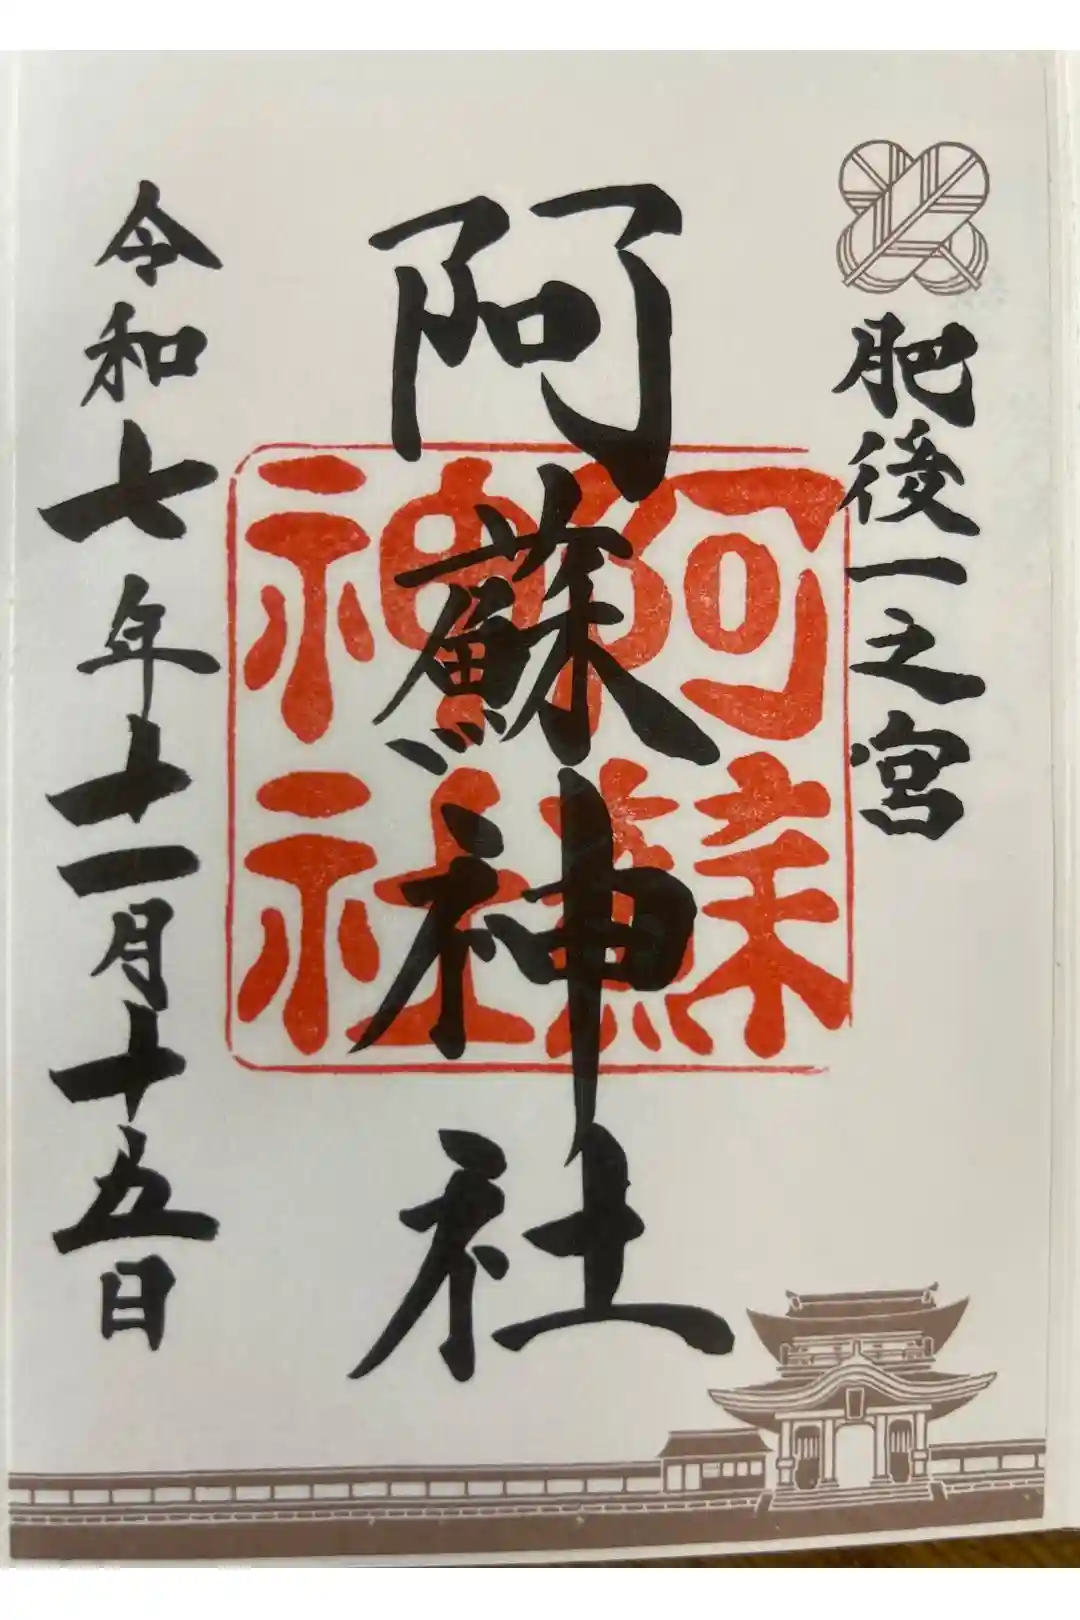 肥後一之宮
阿蘇神社
阿蘇神社
令和七年十一月十五日